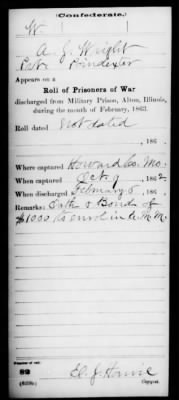 (Confederate.)
W
A. J. Wright
Pvt. Poindexter
Appears on a
Roll of Prisoners of War
discharged from Military Prison, Alton, Illinois,
during the month of February, 1863.
Roll dated
Not dated
, 186
Where captured Howard Co. Mo.
When captured Oct 9, 1862
When discharged February 6, 186
Remarks: Oath & Bond of
$1000 to enrol in E. M. M.
Number of roll:
82
(639b) Copyist.